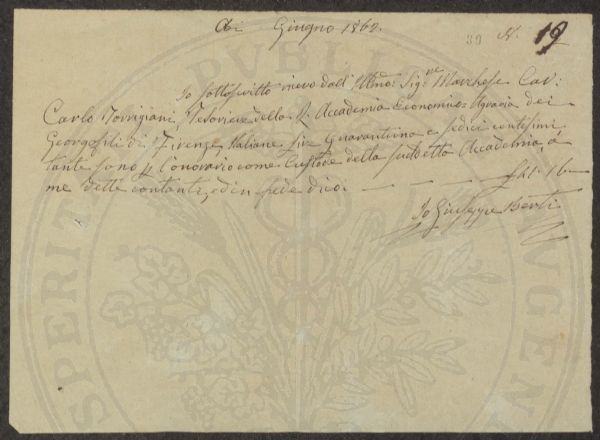 Adi Giugno 1862.
30 N. 19
Io sottoscritto ricevo dall' Illmo: Sig.re Marchese Cav:
Carlo Torrigiani, Tesoriere della R. Accademia Economico-Agraria dei
Georgofili di Firenze Italiane Lire quarantuna e sedici centesimi,
tante sono p. l'onorario come Custode della suddetta Accademia, a
me dette contante, ed in fede dico. 41. 16
Io Giuseppe Berti
PROSPERITATI PUBLICAE AUGENDAE